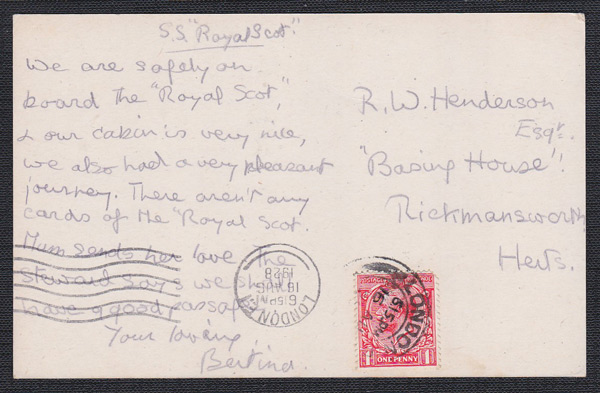 S.S. "Royal Scot."
We are safely on
board the "Royal Scot",
& our cabin is very nice,
we also had a very pleasant
journey. There aren't any
cards of the "Royal Scot.
Mum sends her love. The
steward says we should
have a good passage
Your loving,
Bertina.
R. W. Henderson
Esqr.
"Basing House"!
Rickmansworth
Herts.
LONDON
6 15 PM
16 AUG
1928
LONDON
6 15 PM
16
POSTAGE
ONE PENNY